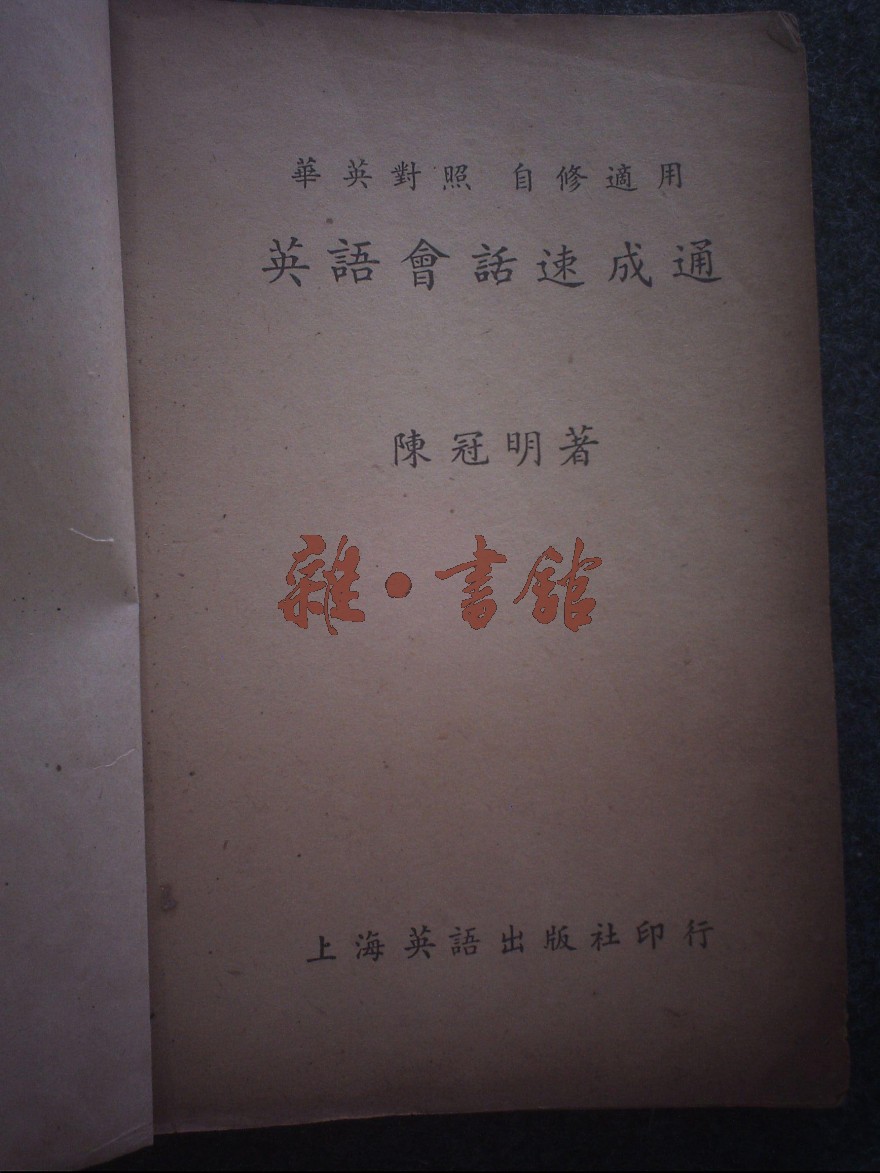 華英對照 自修適用
英語會話速成通
陳冠明著
雜·書館
上海英語出版社印行